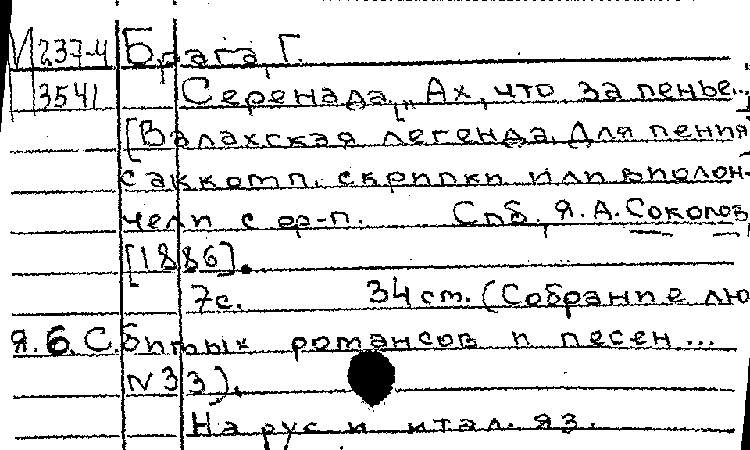 М 237-4 Брага, Г.
3541 Серенада. „Ах, что за пенье...
[Валахская легенда. Для пения
с аккомп. скрипки или виолон-
чели с ф-п. Спб., Я. А. Соколов,
[1886].
7 с. 34 ст. (Собрание лю
Я. б. С. бимых романсов и песен...
N 33).
На рус и итал. яз.